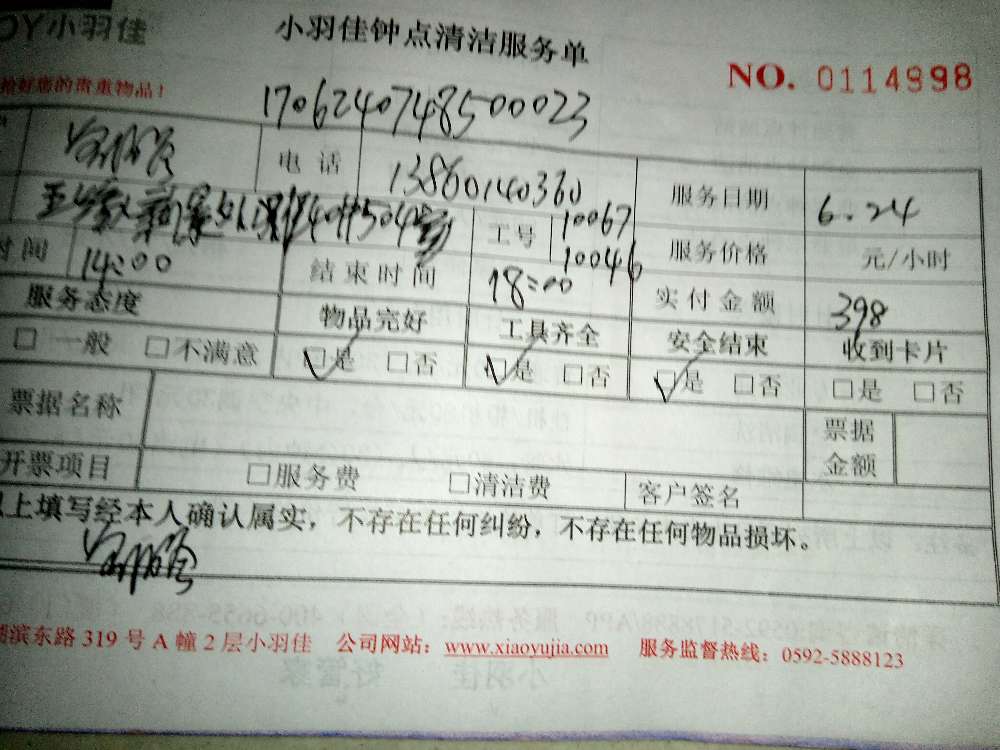 OY小羽佳
小羽佳钟点清洁服务单
NO. 0114998
好您的贵重物品！
1706240748500023
电话 13860140360 服务日期 6.24
工号 10067 10046 服务价格 元/小时
时间 14:00 结束时间 18:00 实付金额 398
服务态度 物品完好 工具齐全 安全结束 收到卡片
□ 一般 □不满意 ☑是 □否 ☑是 □否 ☑是 □否 □是 □否
票据名称 票据金额
开票项目 □服务费 □清洁费 客户签名
上填写经本人确认属实，不存在任何纠纷，不存在任何物品损坏。
湖滨东路 319 号 A 幢 2 层小羽佳 公司网站：www.xiaoyujia.com 服务监督热线：0592-5888123